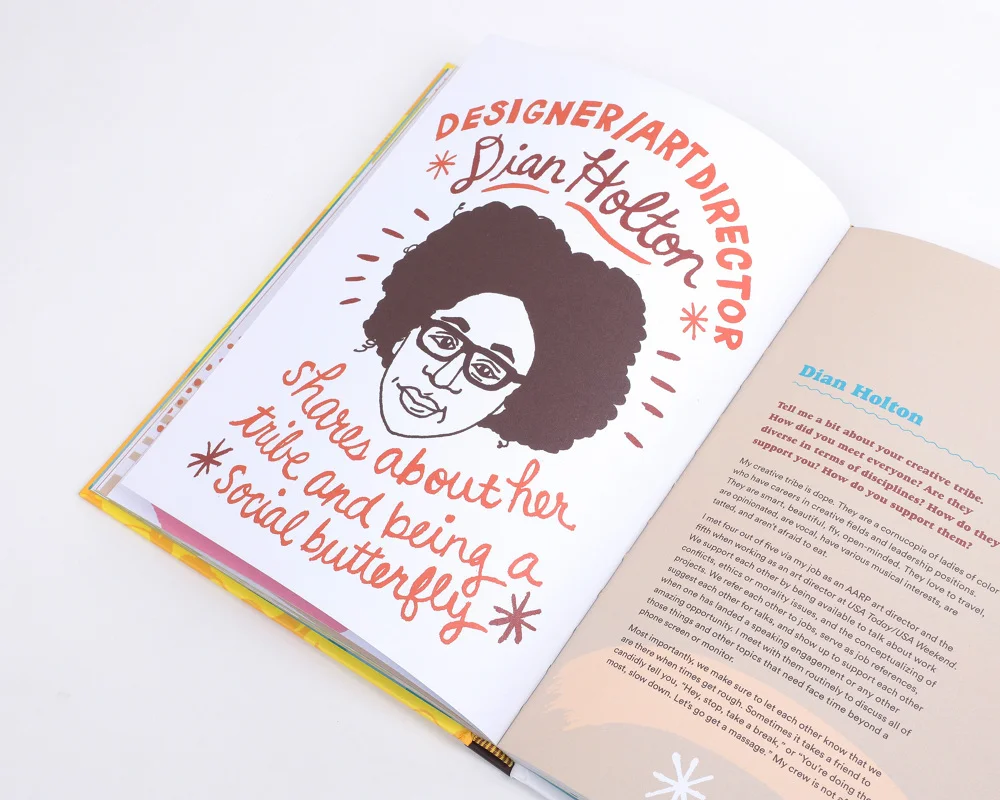 DESIGNER/ART DIRECTOR
Dian Holton
shares about her
tribe and being a
social butterfly
Dian Holton
Tell me a bit about your creative tribe.
How did you meet everyone? Are they
diverse in terms of disciplines? How do they
support you? How do you support them?
My creative tribe is dope. They are a cornucopia of ladies of color
who have careers in creative fields and leadership positions.
They are smart, beautiful, fly, open-minded. They love to travel,
are opinionated, are vocal, have various musical interests, are
tatted, and aren't afraid to eat.
I met four out of five via my job as an AARP art director and the
fifth when working as an art director at USA Today/USA Weekend.
We support each other by being available to talk about work
conflicts, ethics or morality issues, and the conceptualizing of
projects. We refer each other to jobs, serve as job references,
suggest each other for talks, and show up to support each other
when one has landed a speaking engagement or any other
amazing opportunity. I meet with them routinely to discuss all of
those things and other topics that need face time beyond a
phone screen or monitor.
Most importantly, we make sure to let each other know that we
are there when times get rough. Sometimes it takes a friend to
candidly tell you, "Hey, stop, take a break," or "You're doing the
most, slow down. Let's go get a massage." My crew is not